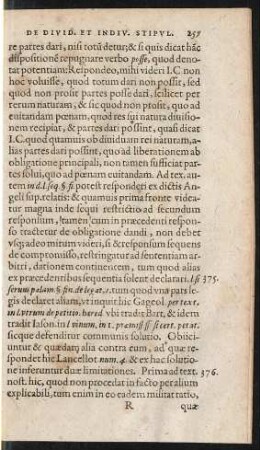 DE DIVID. ET INDIV. STIPVL. 257
re partes dari, nisi totũ detur; & si quis dicat hãc
dispositionẽ repugnare verbo posse, quod deno-
tat potentiam: Respondeo, mihi videri I.C. non
hoc voluisse, quod totum dari non possit, sed
quod non prosit partes posse dari, scilicet per
rerum naturam, & sic quod non prosit, quo ad
euitandam pœnam, quod res sui natura diuisio-
nem recipiat, & partes dari possint, quasi dicat
I.C. quod quamuis ob diuiduam rei naturam, a-
liàs partes dari possint, quo ad liberationem ab
obligatione principali, non tamen sufficiat par-
tes solui, quo ad pœnam euitandam. Ad tex. au-
tem in d. l. seq. §. si. potest responderi ex dictis An-
geli sup. relatis: & quamuis prima fronte videa-
tur magna inde sequi restrictio ad secundum
responsum, tamen cum in præcedenti respon-
so tractetur de obligatione dandi, non debet
vsq; adeo mitum videri, si & responsum sequens
de compromisso, restringatur ad sententiam ar-
bitri, dationem continentem, tum quod alias
ex præcedentibus sequentia solent declarari. l. si 375.
seruum palam. §. fin. de legat. 2. tum quod vna pars le-
gis declaret aliam, vt inquit hic Gageol per text.
in l. vtrum de petitio. hæred. vbi tradit Bart, & idem
tradit Iason. in l. vinum, in 1. præmiss. ff. si cert. petat.
sicque defenditur communis solutio. Obiici-
untur & quædam alia contra eum, ad quæ re-
spondet hic Lancellot num. 4. & ex hac solutio-
ne inferuntur duæ limitationes. Prima ad text. 376.
nost. hic, quod non procedat in facto peralium
explicabili, tum enim in eo eadem militat ratio,
R quæ